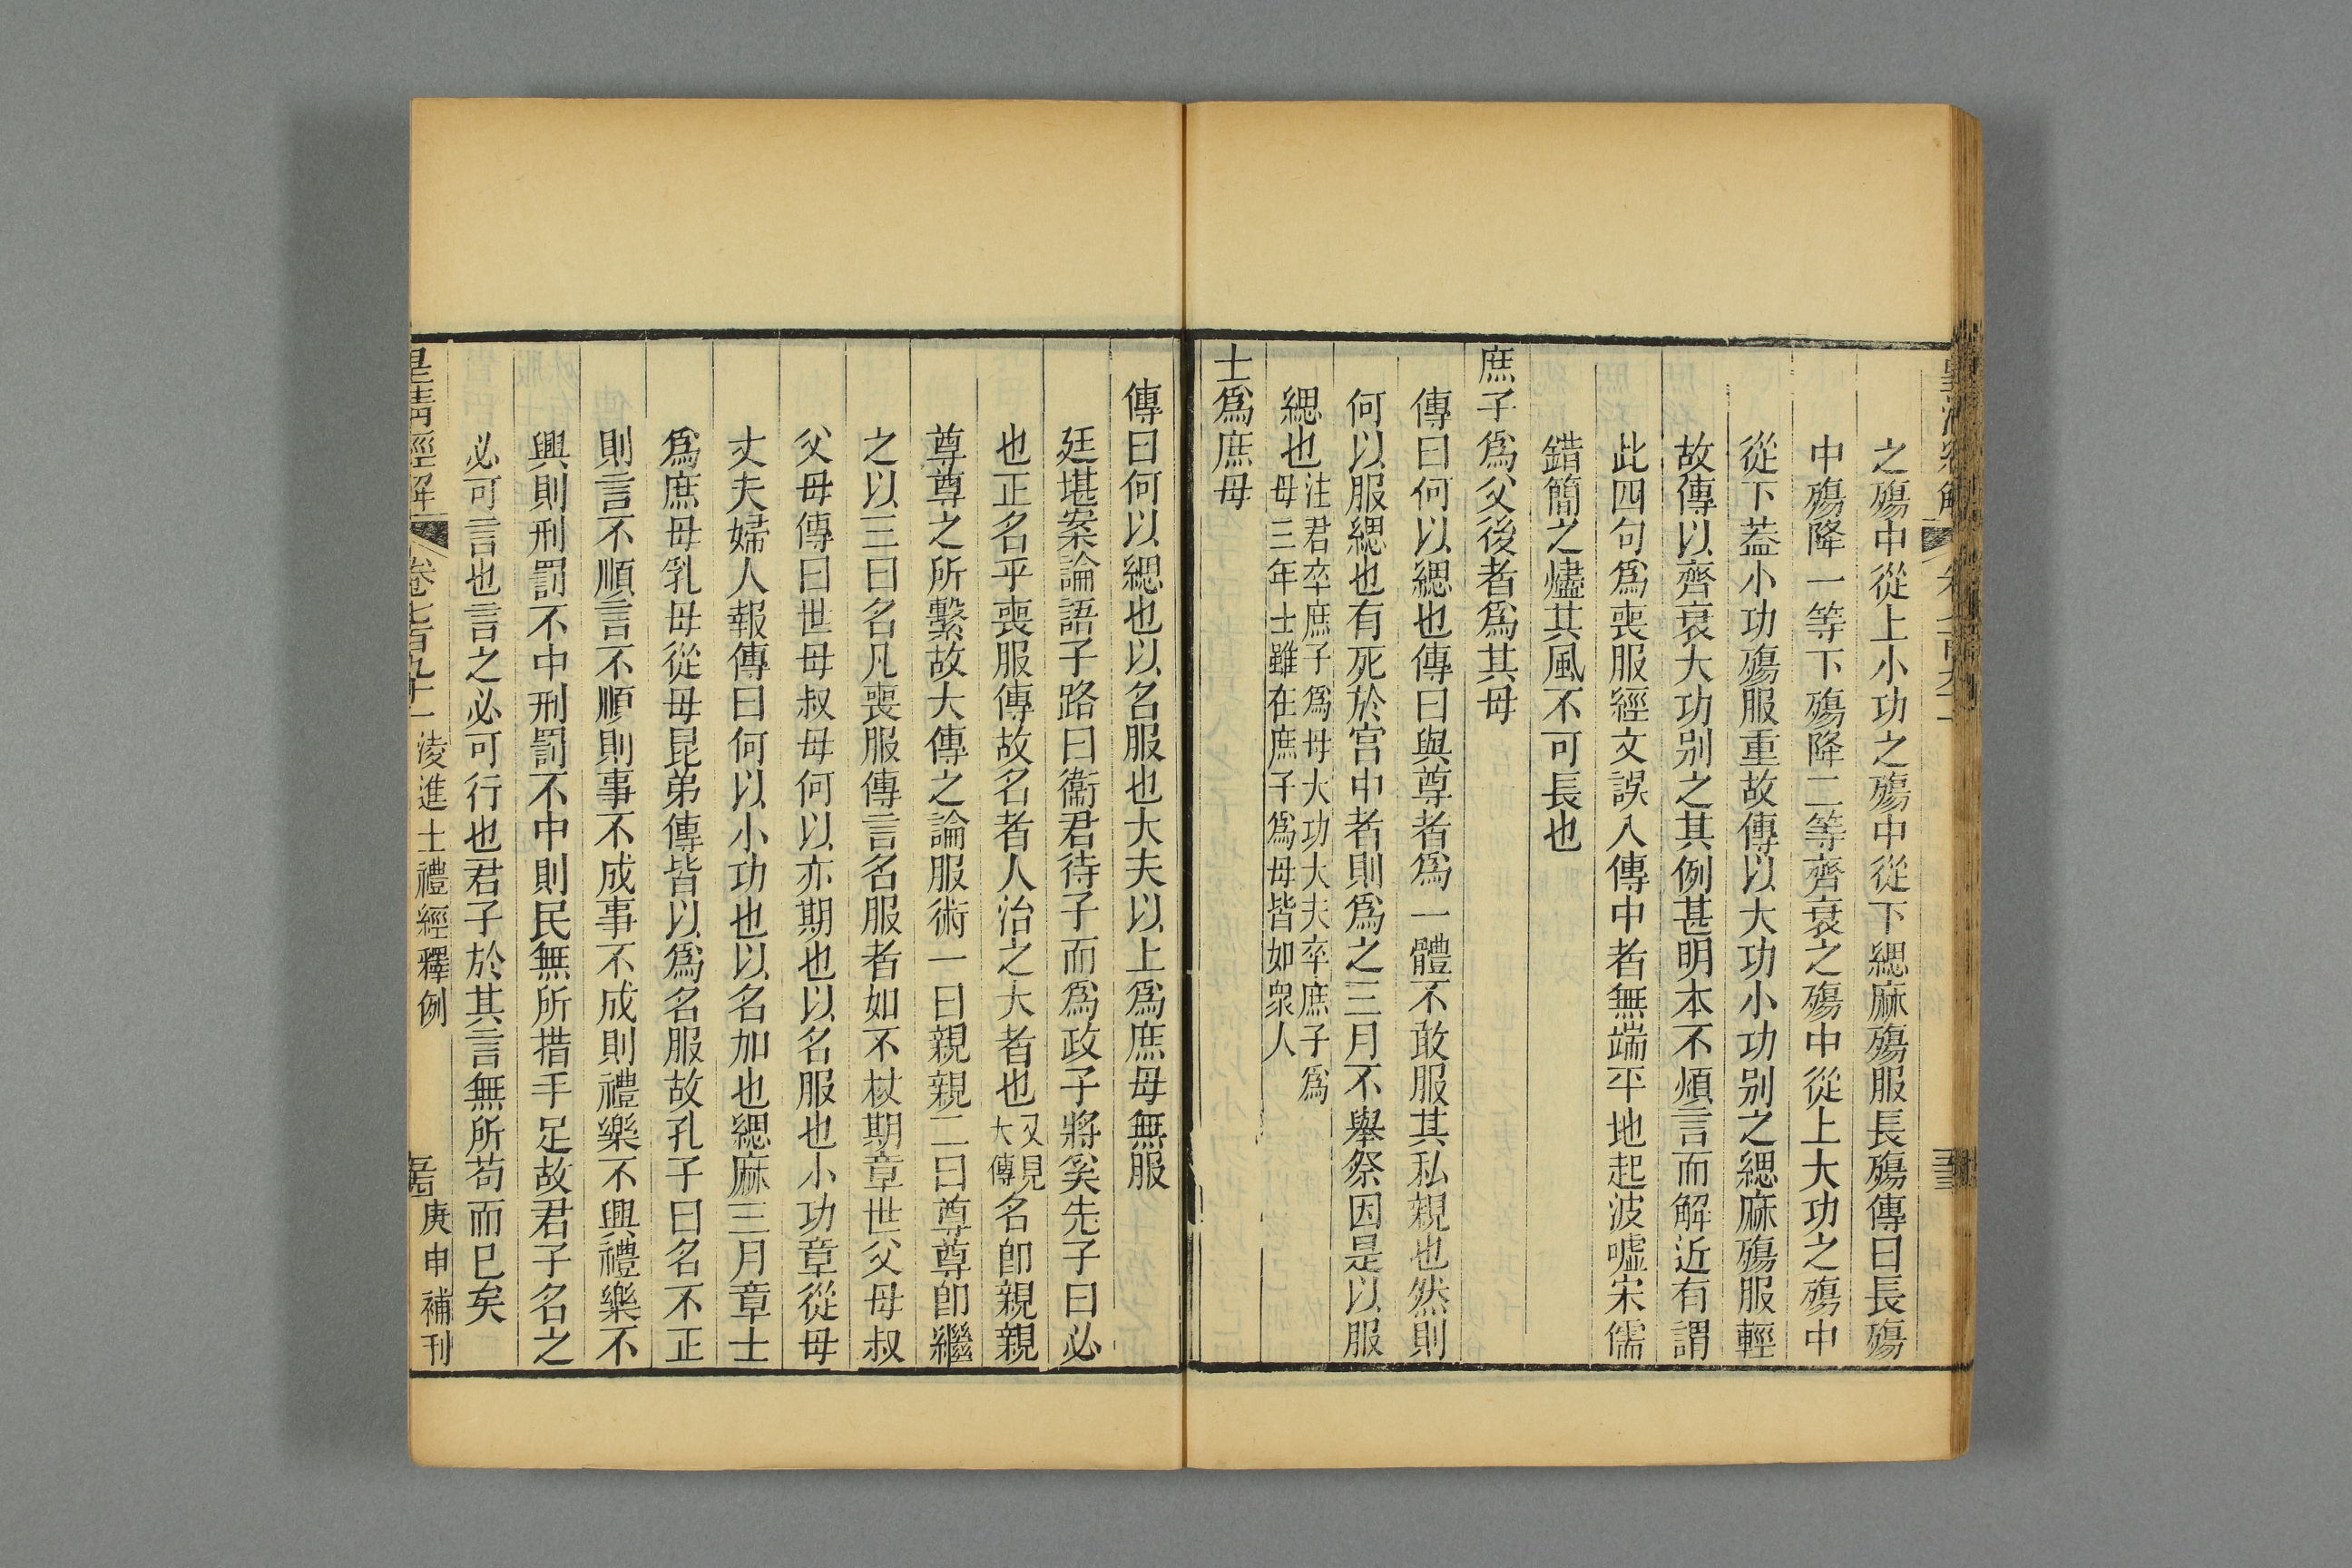 之殤中從上小功之殤中從下緦麻殤服長殤傳曰長殤
中殤降一等下殤降二等齊衰之殤中從上大功之殤中
從下蓋小功殤服重故傳以大功小功别之緦麻殤服輕
故傳以齊衰大功别之其例甚明本不煩言而解近有謂
此四句爲喪服經文誤入傳中者無端平地起波嘘宋儒
錯簡之燼其風不可長也
庶子爲父後者爲其母
傳曰何以緦也傳曰與尊者爲一體不敢服其私親也然則
何以服緦也有死於宮中者則爲之三月不舉祭因是以服
緦也注君卒庶子爲母大功大夫卒庶子爲
母三年士雖在庶子爲母皆如眾人
士爲庶母
傳曰何以緦也以名服也大夫以上爲庶母無服
廷堪案論語子路曰衞君待子而爲政子將奚先子曰必
也正名乎喪服傳故名者人治之大者也又見大傳名卽親親
尊尊之所繫故大傳之論服術一曰親親二曰尊尊卽繼
之以三曰名凡喪服傳言名服者如不杖期章世父母叔
父母傳曰世母叔母何以亦期也以名服也小功章從母
丈夫婦人報傳曰何以小功也以名加也緦麻三月章士
爲庶母乳母從母昆弟傳皆以爲名服故孔子曰名不正
則言不順言不順則事不成事不成則禮樂不興禮樂不
興則刑罰不中刑罰不中則民無所措手足故君子名之
必可言也言之必可行也君子於其言無所苟而已矣
皇清經解 卷七百九十一 淩進士禮經釋例 庚申補刊